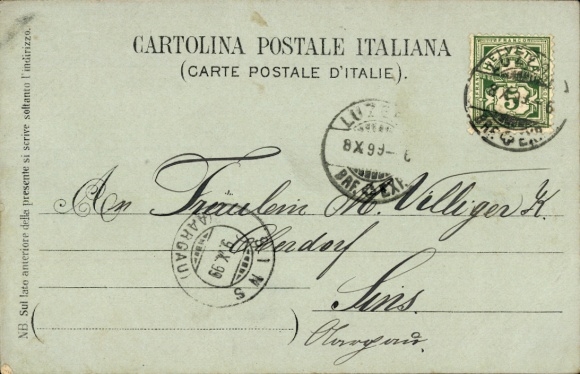 CARTOLINA POSTALE ITALIANA
(CARTE POSTALE D'ITALIE).
FRANCO
HELVETIA
5
LUZERN
8 X 99 - 6
BRF. EXP.
An Fräulein M. Villiger K.
Oberdorf
Sins.
Aargau.
SINS
9 X 99
(AARGAU)
NB. Sul lato anteriore della presente si scrive soltanto l'indirizzo.